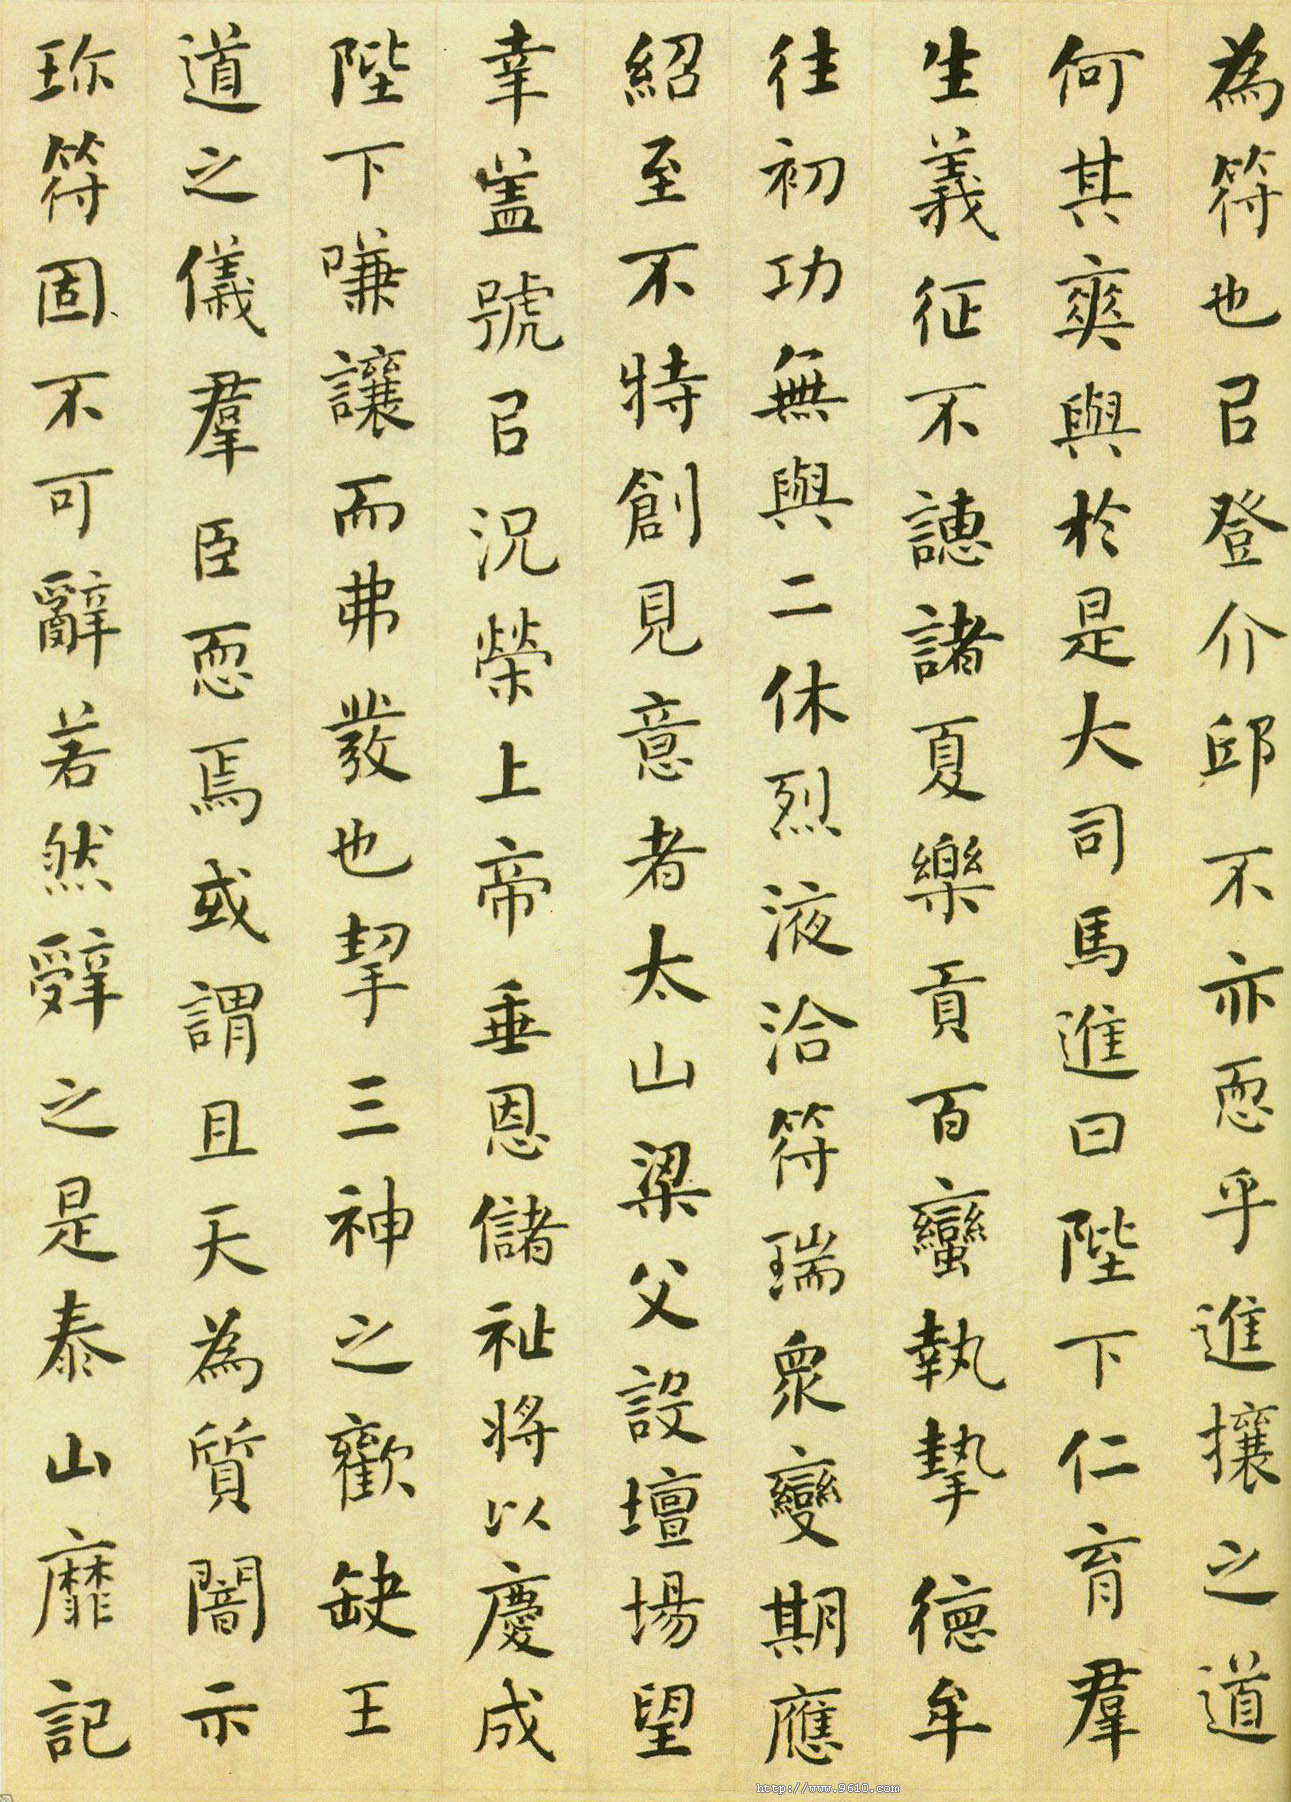 為符也㠯登介邱不亦恧乎進攘之道
何其爽與於是大司馬進曰陛下仁育羣
生義征不譓諸夏樂貢百蠻執摯德牟
往初功無與二休烈液洽符瑞眾變期應
紹至不特創見意者太山梁父設壇場望
幸蓋號㠯況榮上帝垂恩儲祉將以慶成
陛下嗛讓而弗發也挈三神之歡缺王
道之儀羣臣恧焉或謂且天為質闇示
珎符固不可辭若然辤之是泰山靡記
http://www.9610.com